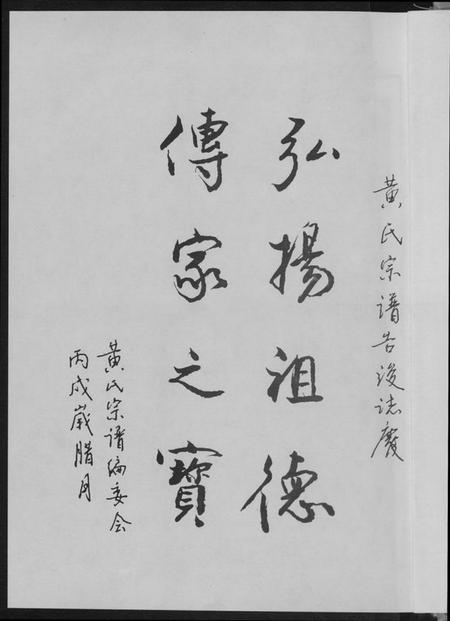 黄氏宗谱告竣志庆
弘揚祖德
傳家之寶
黄氏宗谱编委会
丙戍歲腊月